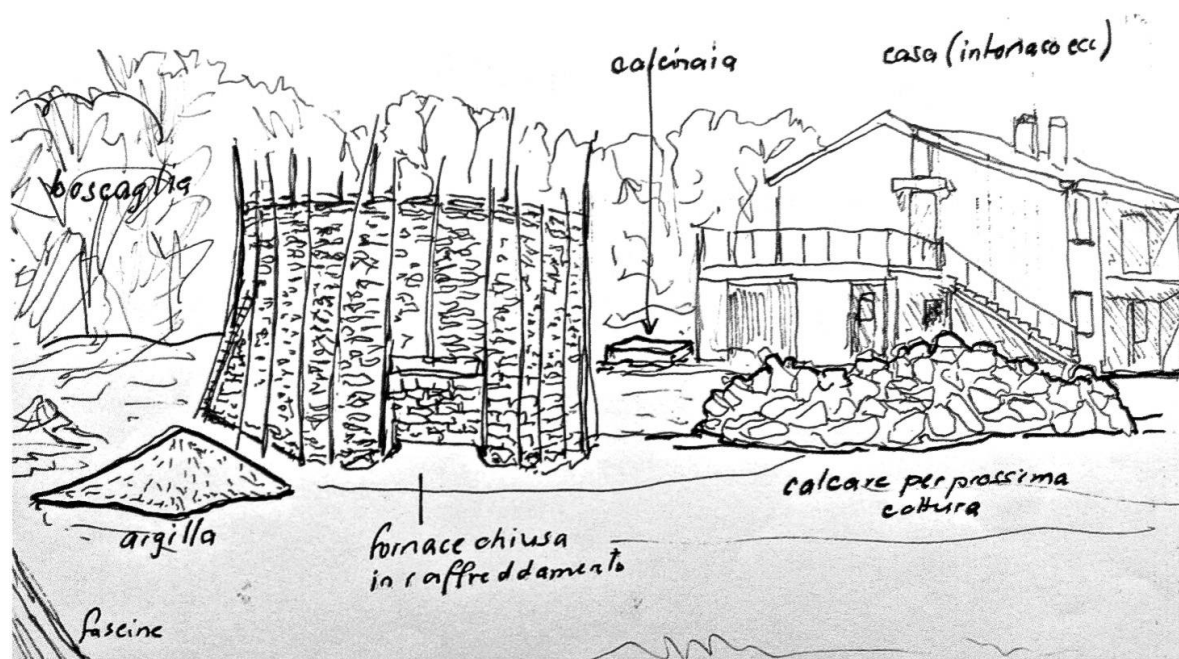 calcinaia
casa (intonaco ecc)
boscaglia
argilla
fornace chiusa
in raffreddamento
calcare per prossima
cottura
fascine